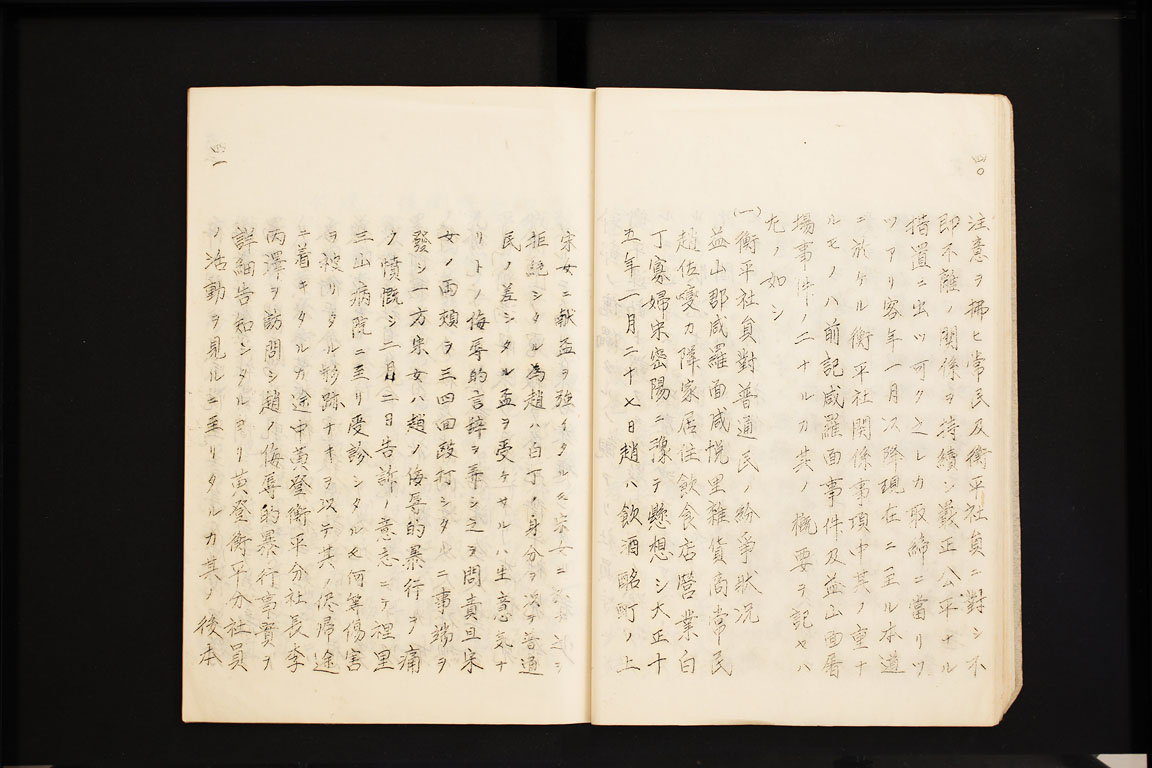 四〇
注意ヲ拂ヒ常民及衡平社員ニ對シ不
即不離ノ関係ヲ持續シ嚴正公平ナル
措置ニ出ツ可ク之レカ取締ニ當リツ
ツアリ客年一月以降現在ニ至ル本道
ニ於ケル衡平社関係事項中其ノ重ナ
ルモノハ前記咸羅面事件及益山面屠
場事件ノ二ナルカ其ノ概要ヲ記セハ
左ノ如シ
(一)衡平社員對普通民ノ紛爭狀況
益山郡咸羅面咸悅里雜貨商常民
趙佐燮カ隣家居住飲食店營業白
丁寡婦宋密陽ニ豫テ懸想シ大正十
五年一月二十七日趙ハ飲酒酩酊ノ上
四一
宋女ニ献盃ヲ强イタルモ宋女ニ
拒絶シタル為趙ハ白丁ノ身分ヲ以テ普通
民ノ差シタル盃ヲ受ケサルハ生意気ナ
リトノ侮辱的言辞ヲ弄シ之ヲ問責且宋
女ノ両頬ヲ三四回殴打シタルニ事端ヲ
發シ一方宋女ハ趙ノ侮辱的暴行ヲ痛
ク憤慨シ二月二日告訴ノ意志ニテ裡里
三山病院ニ至リ受診シタルモ何等傷害
ヲ被リタル形跡ナキヲ以テ其ノ侭帰途
ニ着キタルカ途中黄登衡平分社長李
丙澤ヲ訪問シ趙ノ侮辱的暴行事實ヲ
詳細告知シタルヨリ黄登衡平分社員
ヲ活動ヲ見ルニ至リタルカ其ノ後本